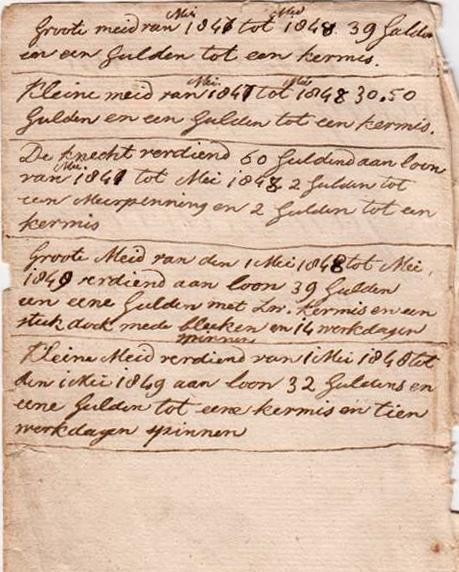 Mei Mei
Groote meid van 1847 tot 1848. 39 Gulden
en een Gulden tot een kermis.
Mei. Mei
Kleine meid van 1847 tot 1848 30.50
Gulden en een Gulden tot een kermis.
De knecht verdiend 60 Guldens aan loon
Mei.
van 1847 tot Mei 1848 2 Gulden tot
een Meerpenning en 2 Gulden tot een
kermis
Groote Meid van den 1 Mei 1848 tot Mei
1849 verdiend aan loon 39 Gulden
en eene Gulden met kermis en een
stuk doek mede bleeken en 14 werkdagen
spinnen
Kleine Meid verdiend van 1 Mei 1848 tot
den 1 Mei 1849 aan loon 32 Guldens en
eene Gulden tot eene kermis en tien
werkdagen spinnen